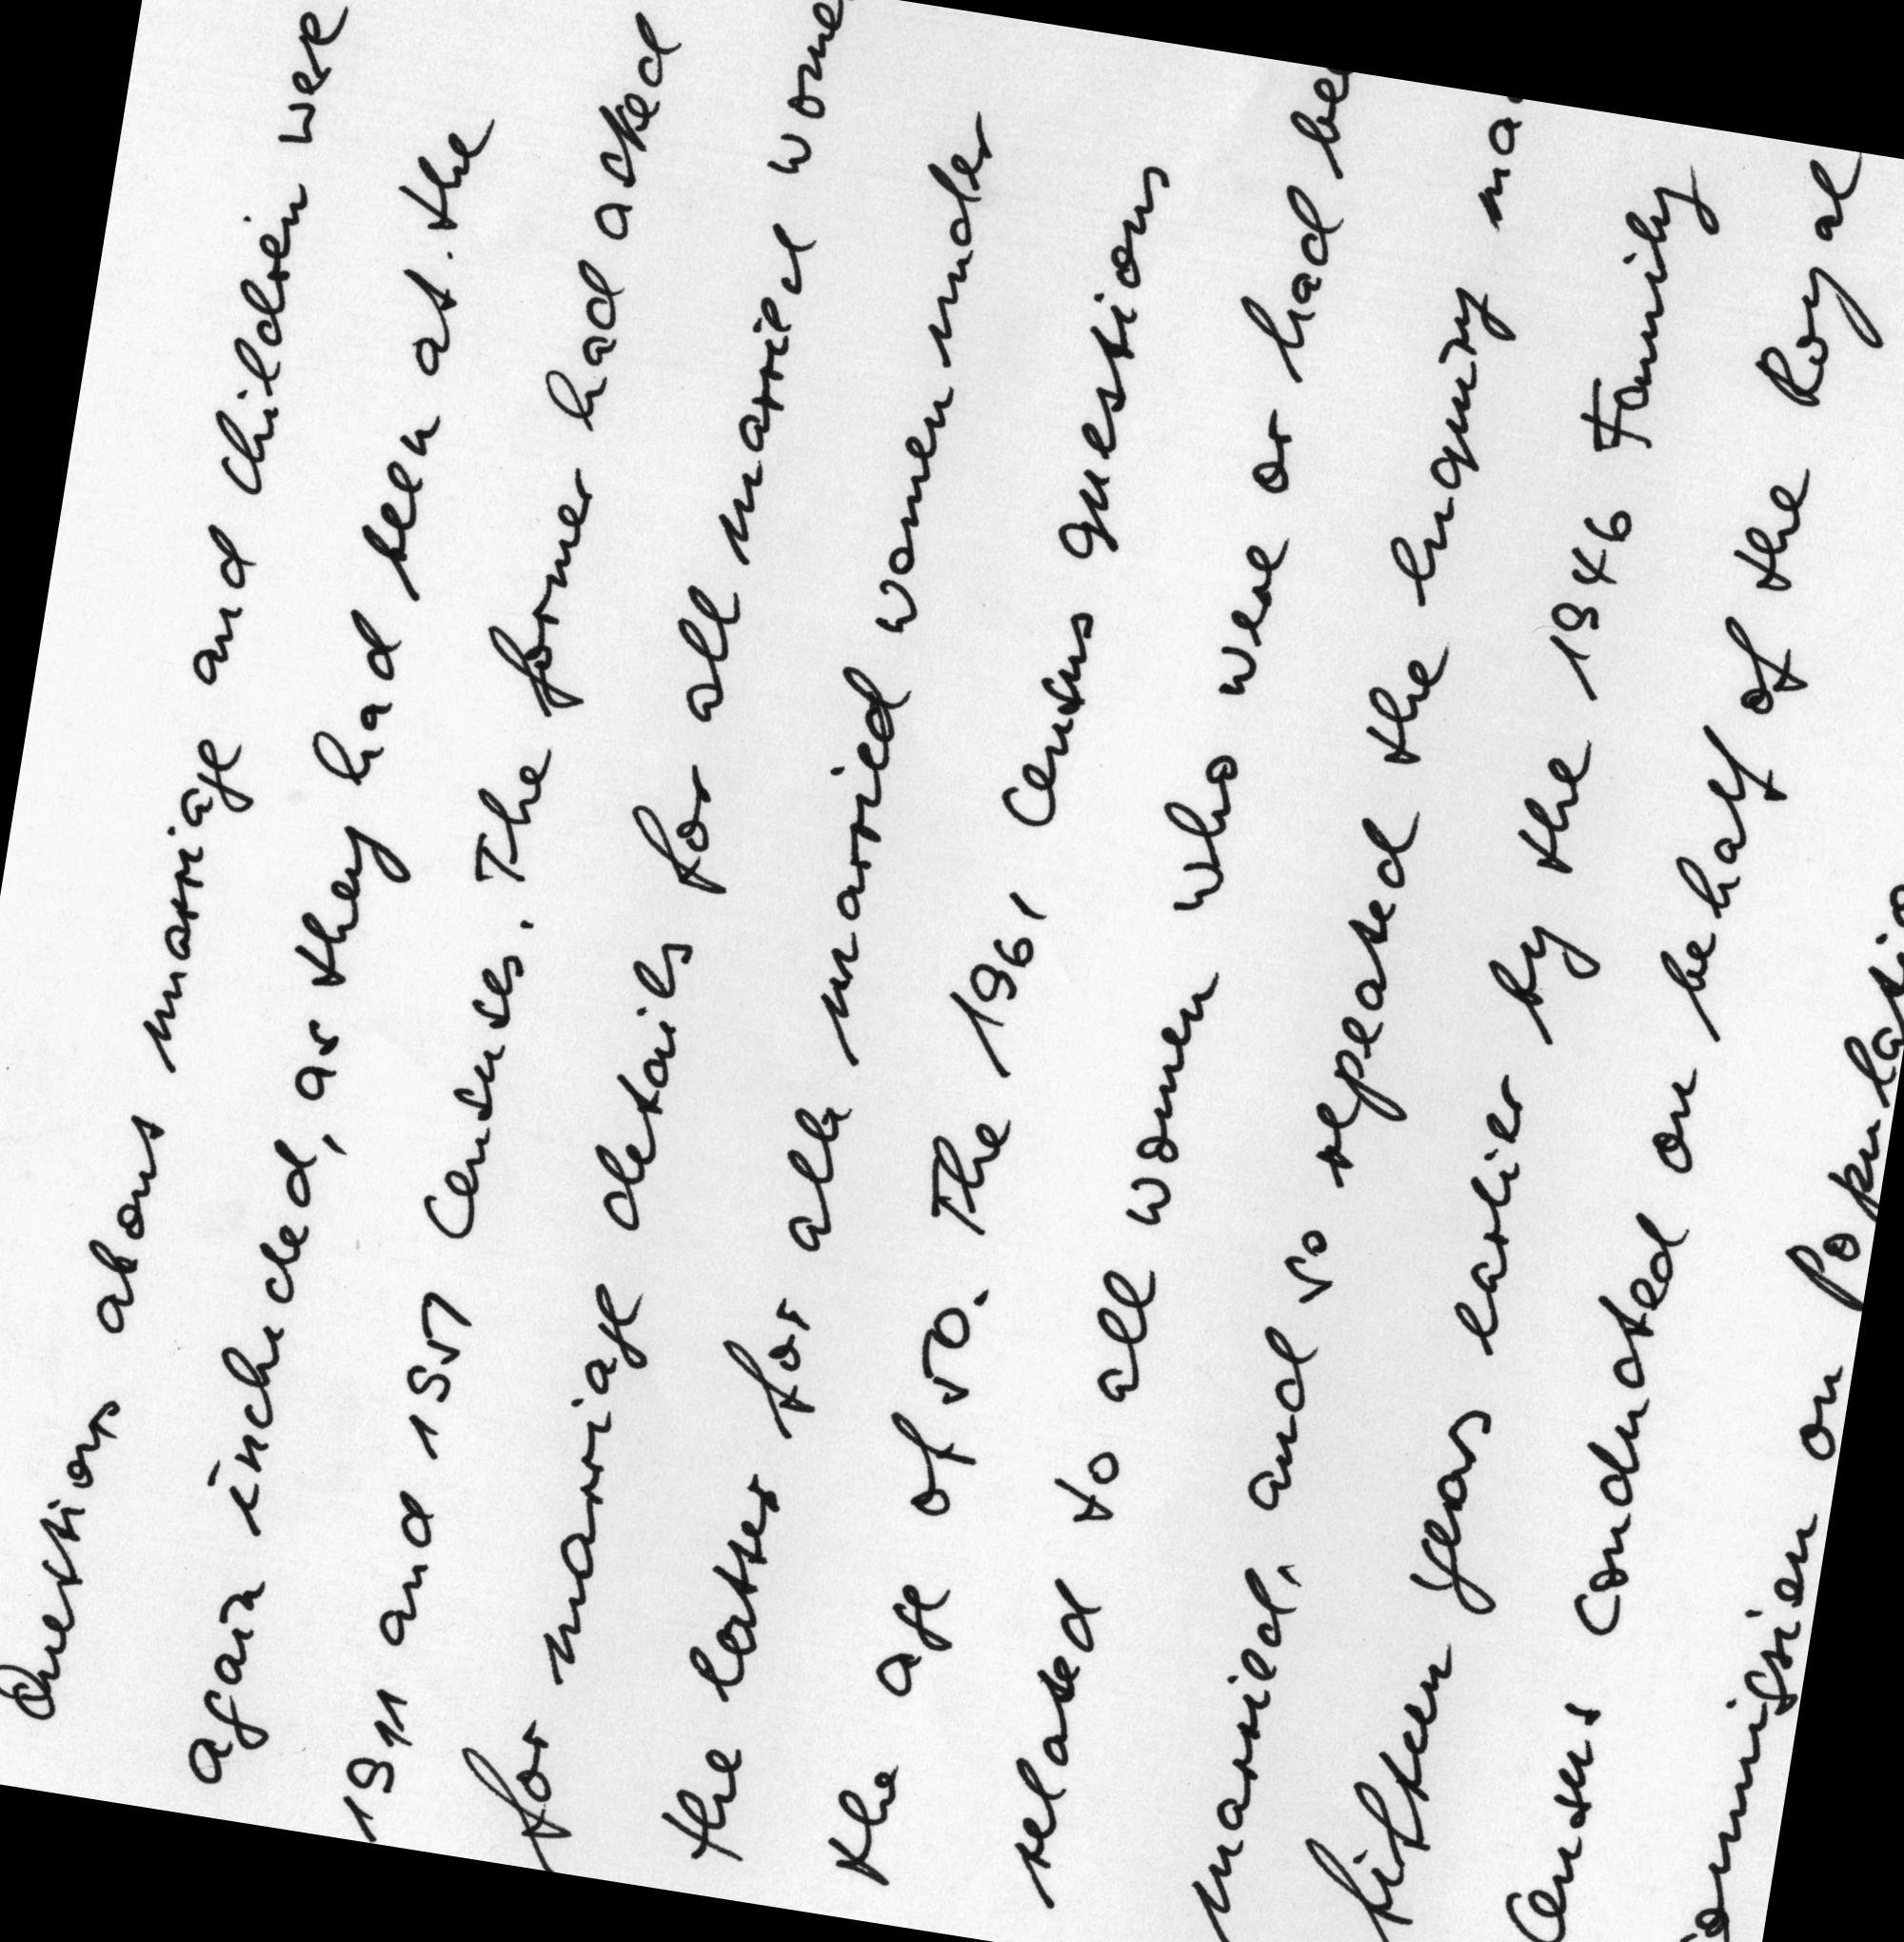 Questions about marriage and children were
again included, as they had been at the
1911 and 1951 Censuses. The former had asked
for marriage details for all married women,
the latter for all married women under
the age of 50. The 1961 Census questions
related to all women who were or had been
married, and so repeated the enquiry made
fifteen years earlier by the 1946 Family
Census conducted on behalf of the Royal
Commission on Population